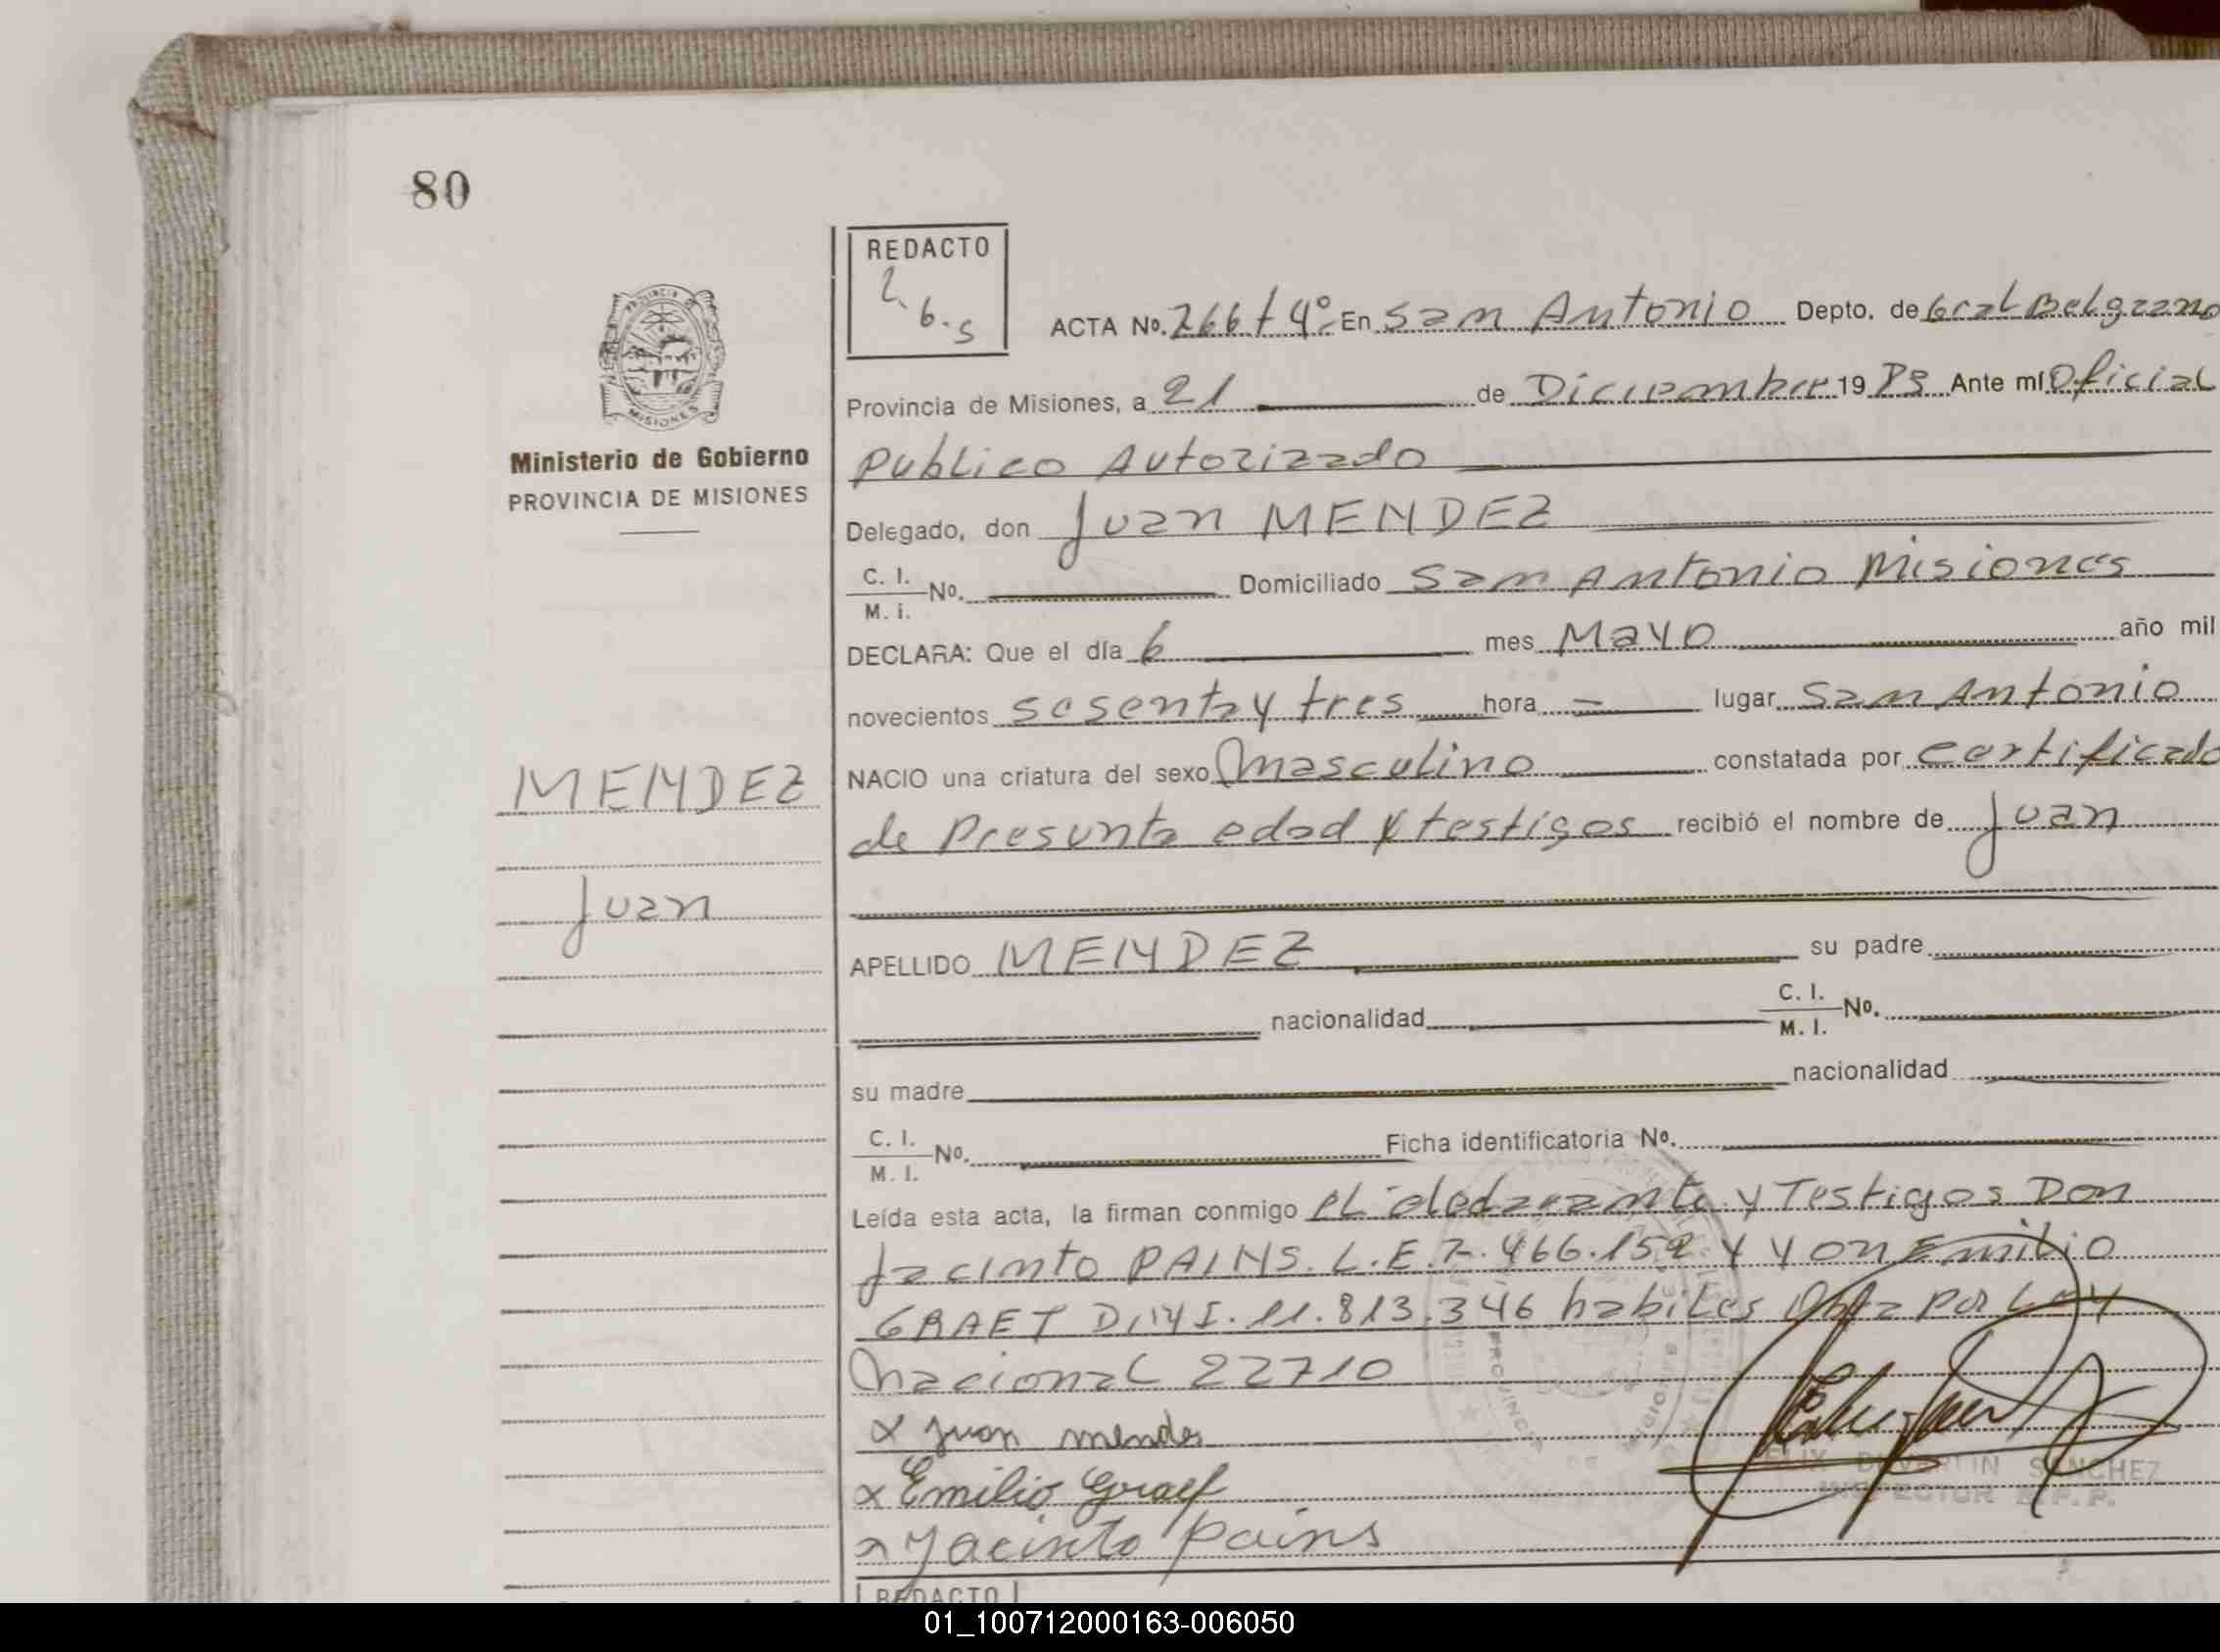 80
REDACTO
L. 6. S
ACTA Nº. 266 t 4º En San Antonio Depto. de Gral Belgrano
Provincia de Misiones, a 21 de Diciembre 1983 Ante mí Oficial
Publico Autorizado
PROVINCIA DE
MISIONES
Ministerio de Gobierno
PROVINCIA DE MISIONES
Delegado, don Juan MENDEZ
C. I.
M. I. Nº. Domiciliado San Antonio Misiones
DECLARA: Que el día 6 mes Mayo año mil
novecientos sesenta y tres hora - lugar San Antonio
MENDEZ
NACIO una criatura del sexo Masculino constatada por certificado
de Presunta edad y testigos recibió el nombre de Juan
Juan
APELLIDO MENDEZ su padre
nacionalidad C. I.
M. I. Nº.
su madre nacionalidad
C. I.
M. I. Nº. Ficha identificatoria Nº.
Leída esta acta, la firman conmigo el declarante y Testigos Don
Jacinto PAINS. L.E. 7.466.152 y y on Emilio
GRAEF D.N.I. 11.813.346 habiles Insta por Ley
Nacional 22710
x juan mendes
x Emilio Graef
x Jacinto Pains
FELIX SANCHEZ
INSPECTOR
REDACTO
01_100712000163-006050